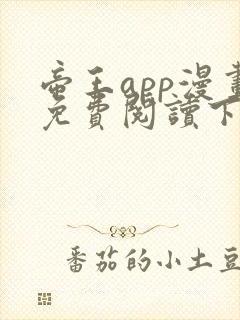 帝王app漫畫
免費閱讀下
番茄的小土豆